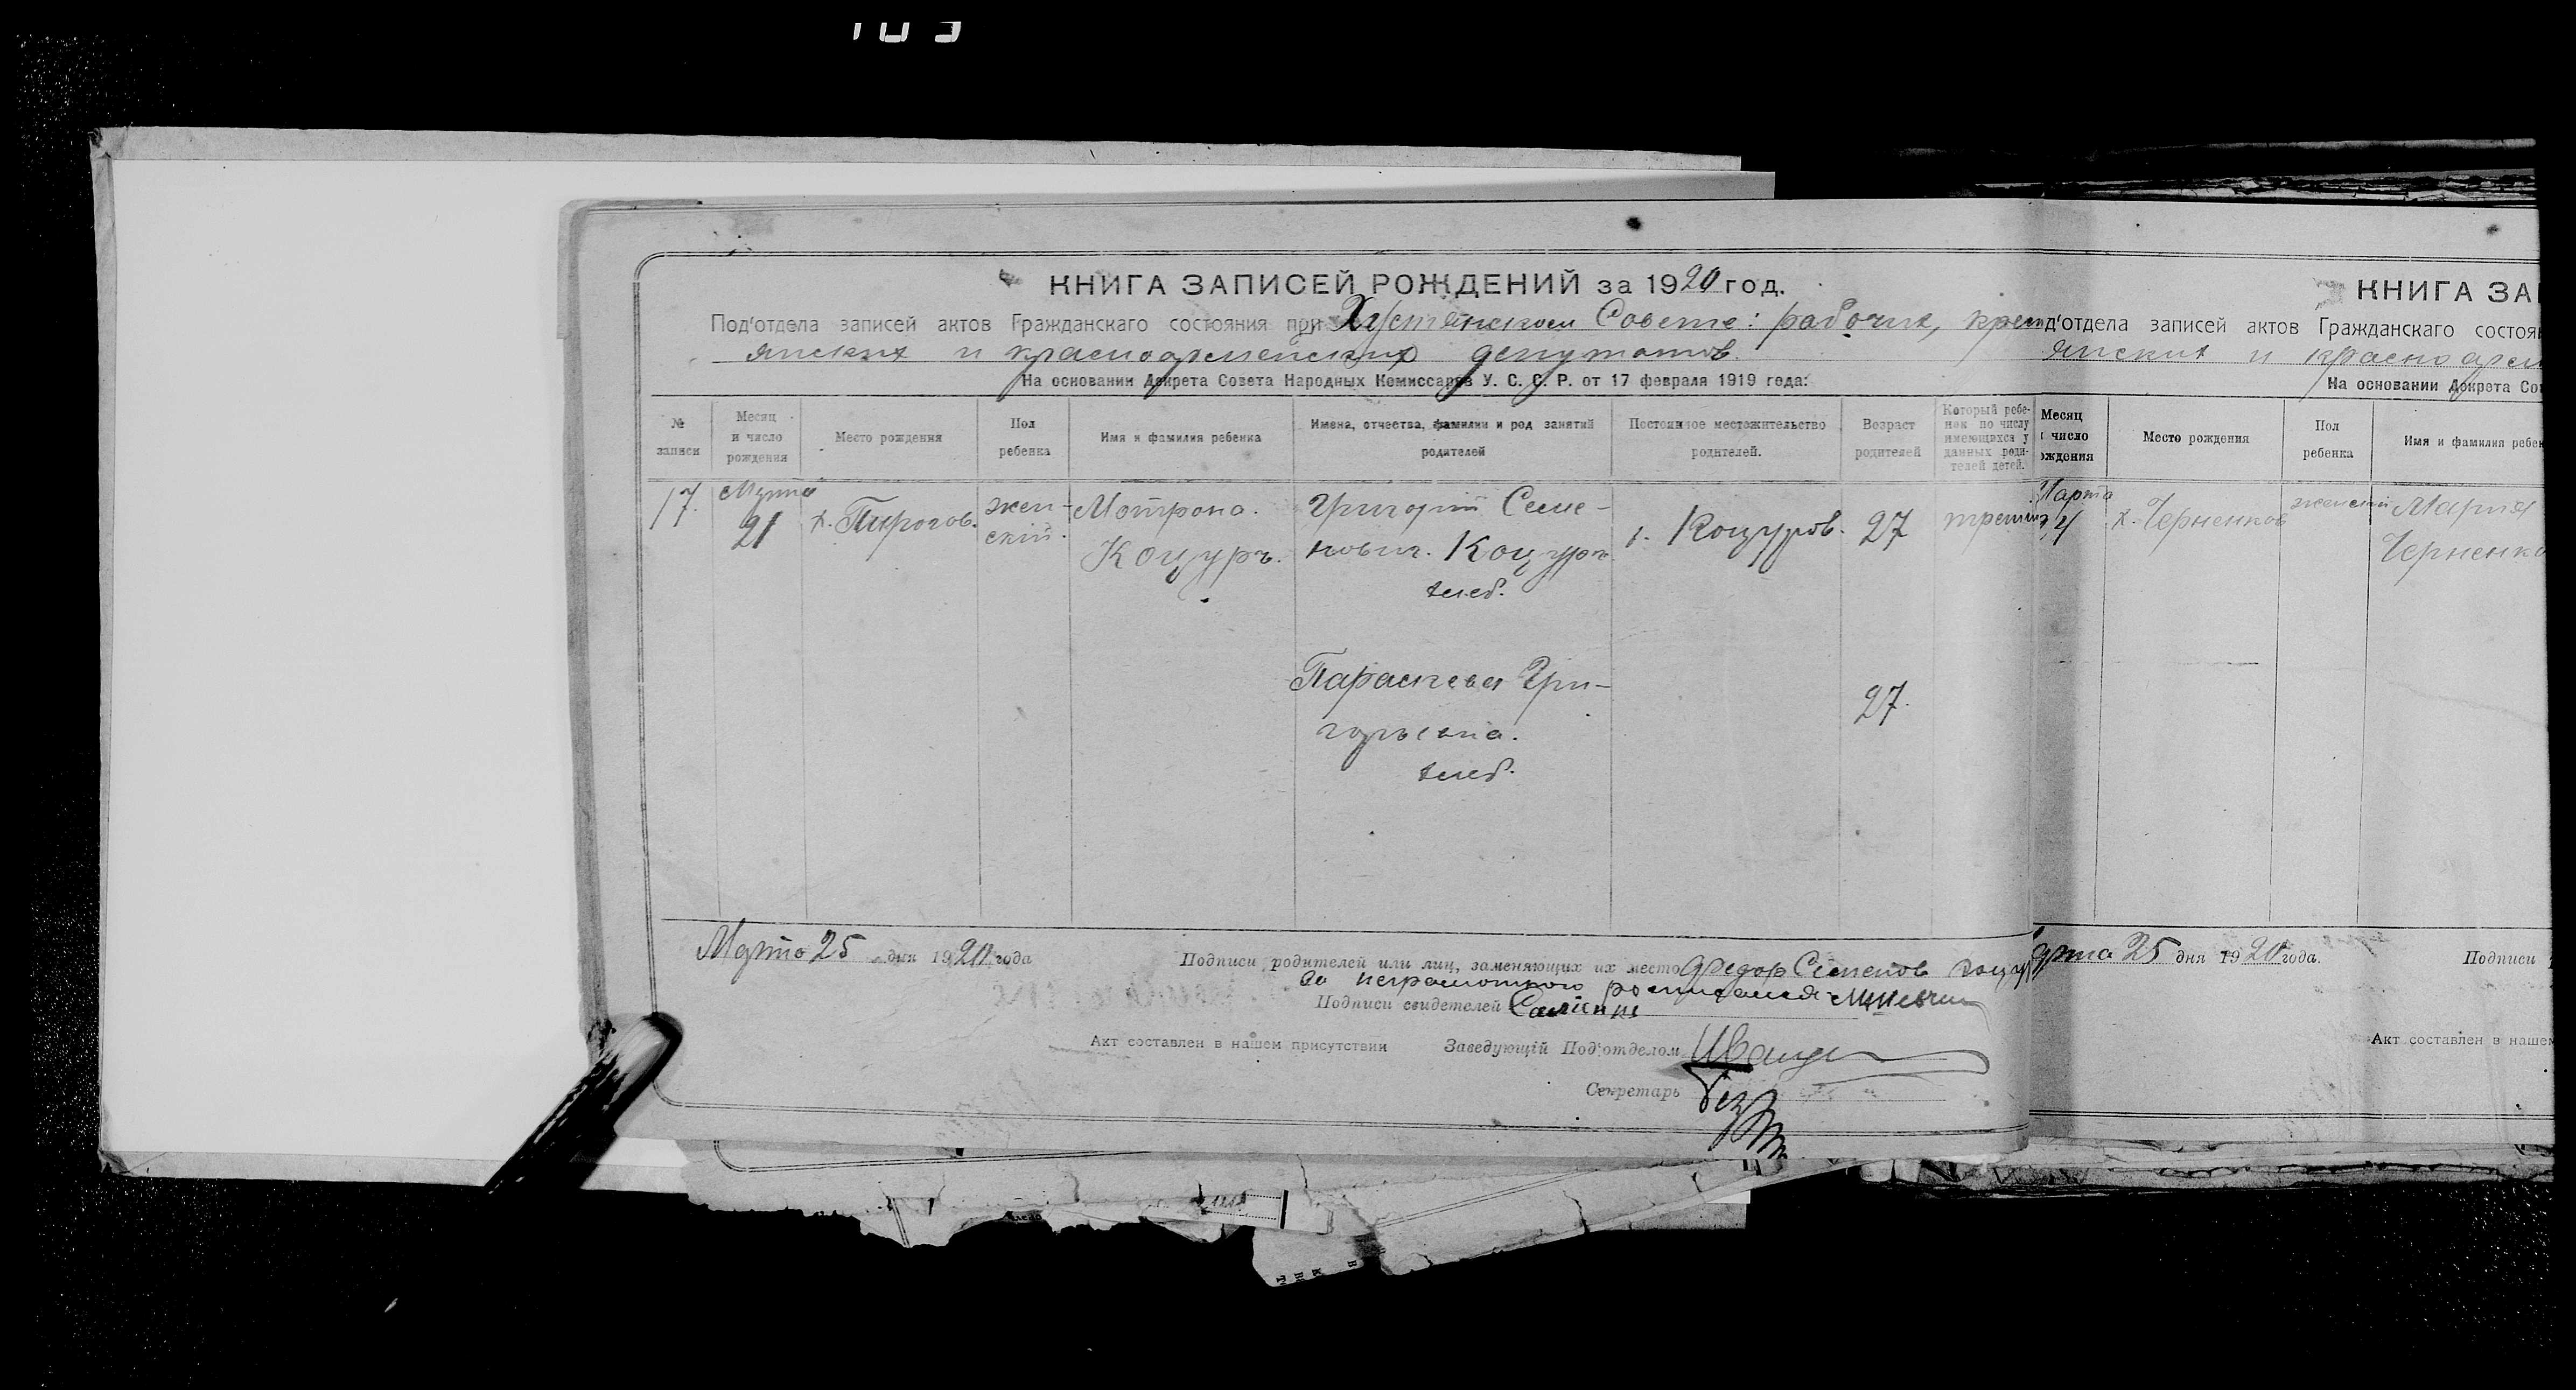 КНИГА ЗАПИСЕЙ РОЖДЕНИЙ за 1920 год.
Под'отдела записей актов Гражданскаго состояния при Совете: рабочих, крест
янских и красноармейских депутатов.
На основании Декрета Совета Народных Комиссаров У. С. С. Р. от 17 февраля 1919 года:
№ записи
Месяц и число рождения
Место рождения
Пол ребенка
Имя и фамилия ребенка
Имена, отчества, фамилии и род занятий родителей
Постоянное местожительство родителей.
Возраст родителей
Который ребенок по числу имеющихся у данных родителей детей.
17.
Марта 21
х. Пирогов.
жен-
ский.
Мотрона.
Коцуръ.
Григорий Семе-
нович. Коцуръ
хлеб.
Параскева Гри-
горьевна.
хлеб.
х. Коцуров.
27
27.
Марта 25 дня 1920 года
Подписи родителей или лиц, заменяющих их место Федор Семенов Коцур
за неграмотного росписался
Подписи свидетелей
Акт составлен в нашем присутствии Заведующій Под'отделом
Секретарь
КНИГА ЗАП
д'отдела записей актов Гражданскаго состоян
янских и красноарм
На основании Декрета Сов
Месяц
и число
рождения
Место рождения
Пол
ребенка
Имя и фамилия ребен
Марта
х. Черненков
женский
Мария
Черненко
арта 25 дня 1920 года.
Подписи
Акт составлен в нашем